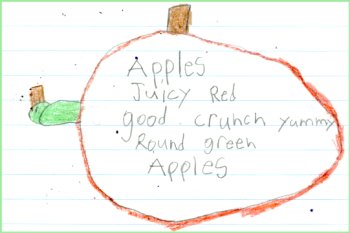 Apples
Juicy Red
good crunch yummy
Round green
Apples